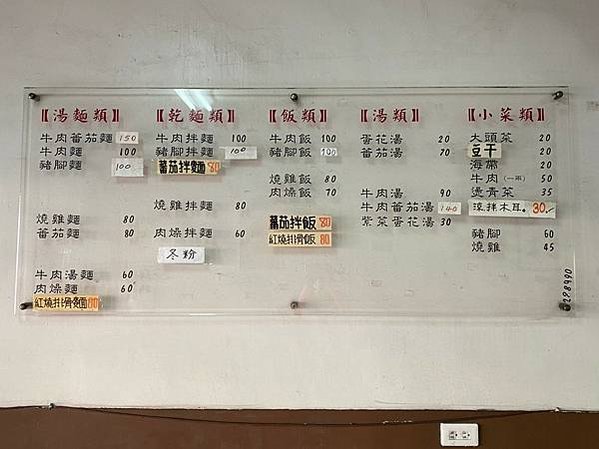 【湯麵類】
牛肉番茄麵 150
牛肉麵 100
豬腳麵 100
燒雞麵 80
番茄麵 80
牛肉湯麵 60
肉燥麵 60
紅燒排骨麵 80
【乾麵類】
牛肉拌麵 100
豬腳拌麵 100
蕃茄拌麵 80
燒雞拌麵 80
肉燥拌麵 60
冬粉
【飯類】
牛肉飯 100
豬腳飯 100
燒雞飯 80
肉燥飯 70
蕃茄拌飯 80
紅燒排骨飯 80
【湯類】
蛋花湯 20
豬腳湯 70
牛肉湯 90
牛肉番茄湯 140
紫菜蛋花湯 30
【小菜類】
大頭菜 20
豆干 20
海帶 20
牛肉(一兩) 50
燙青菜 35
涼拌木耳。 30.
豬腳 60
燒雞 45